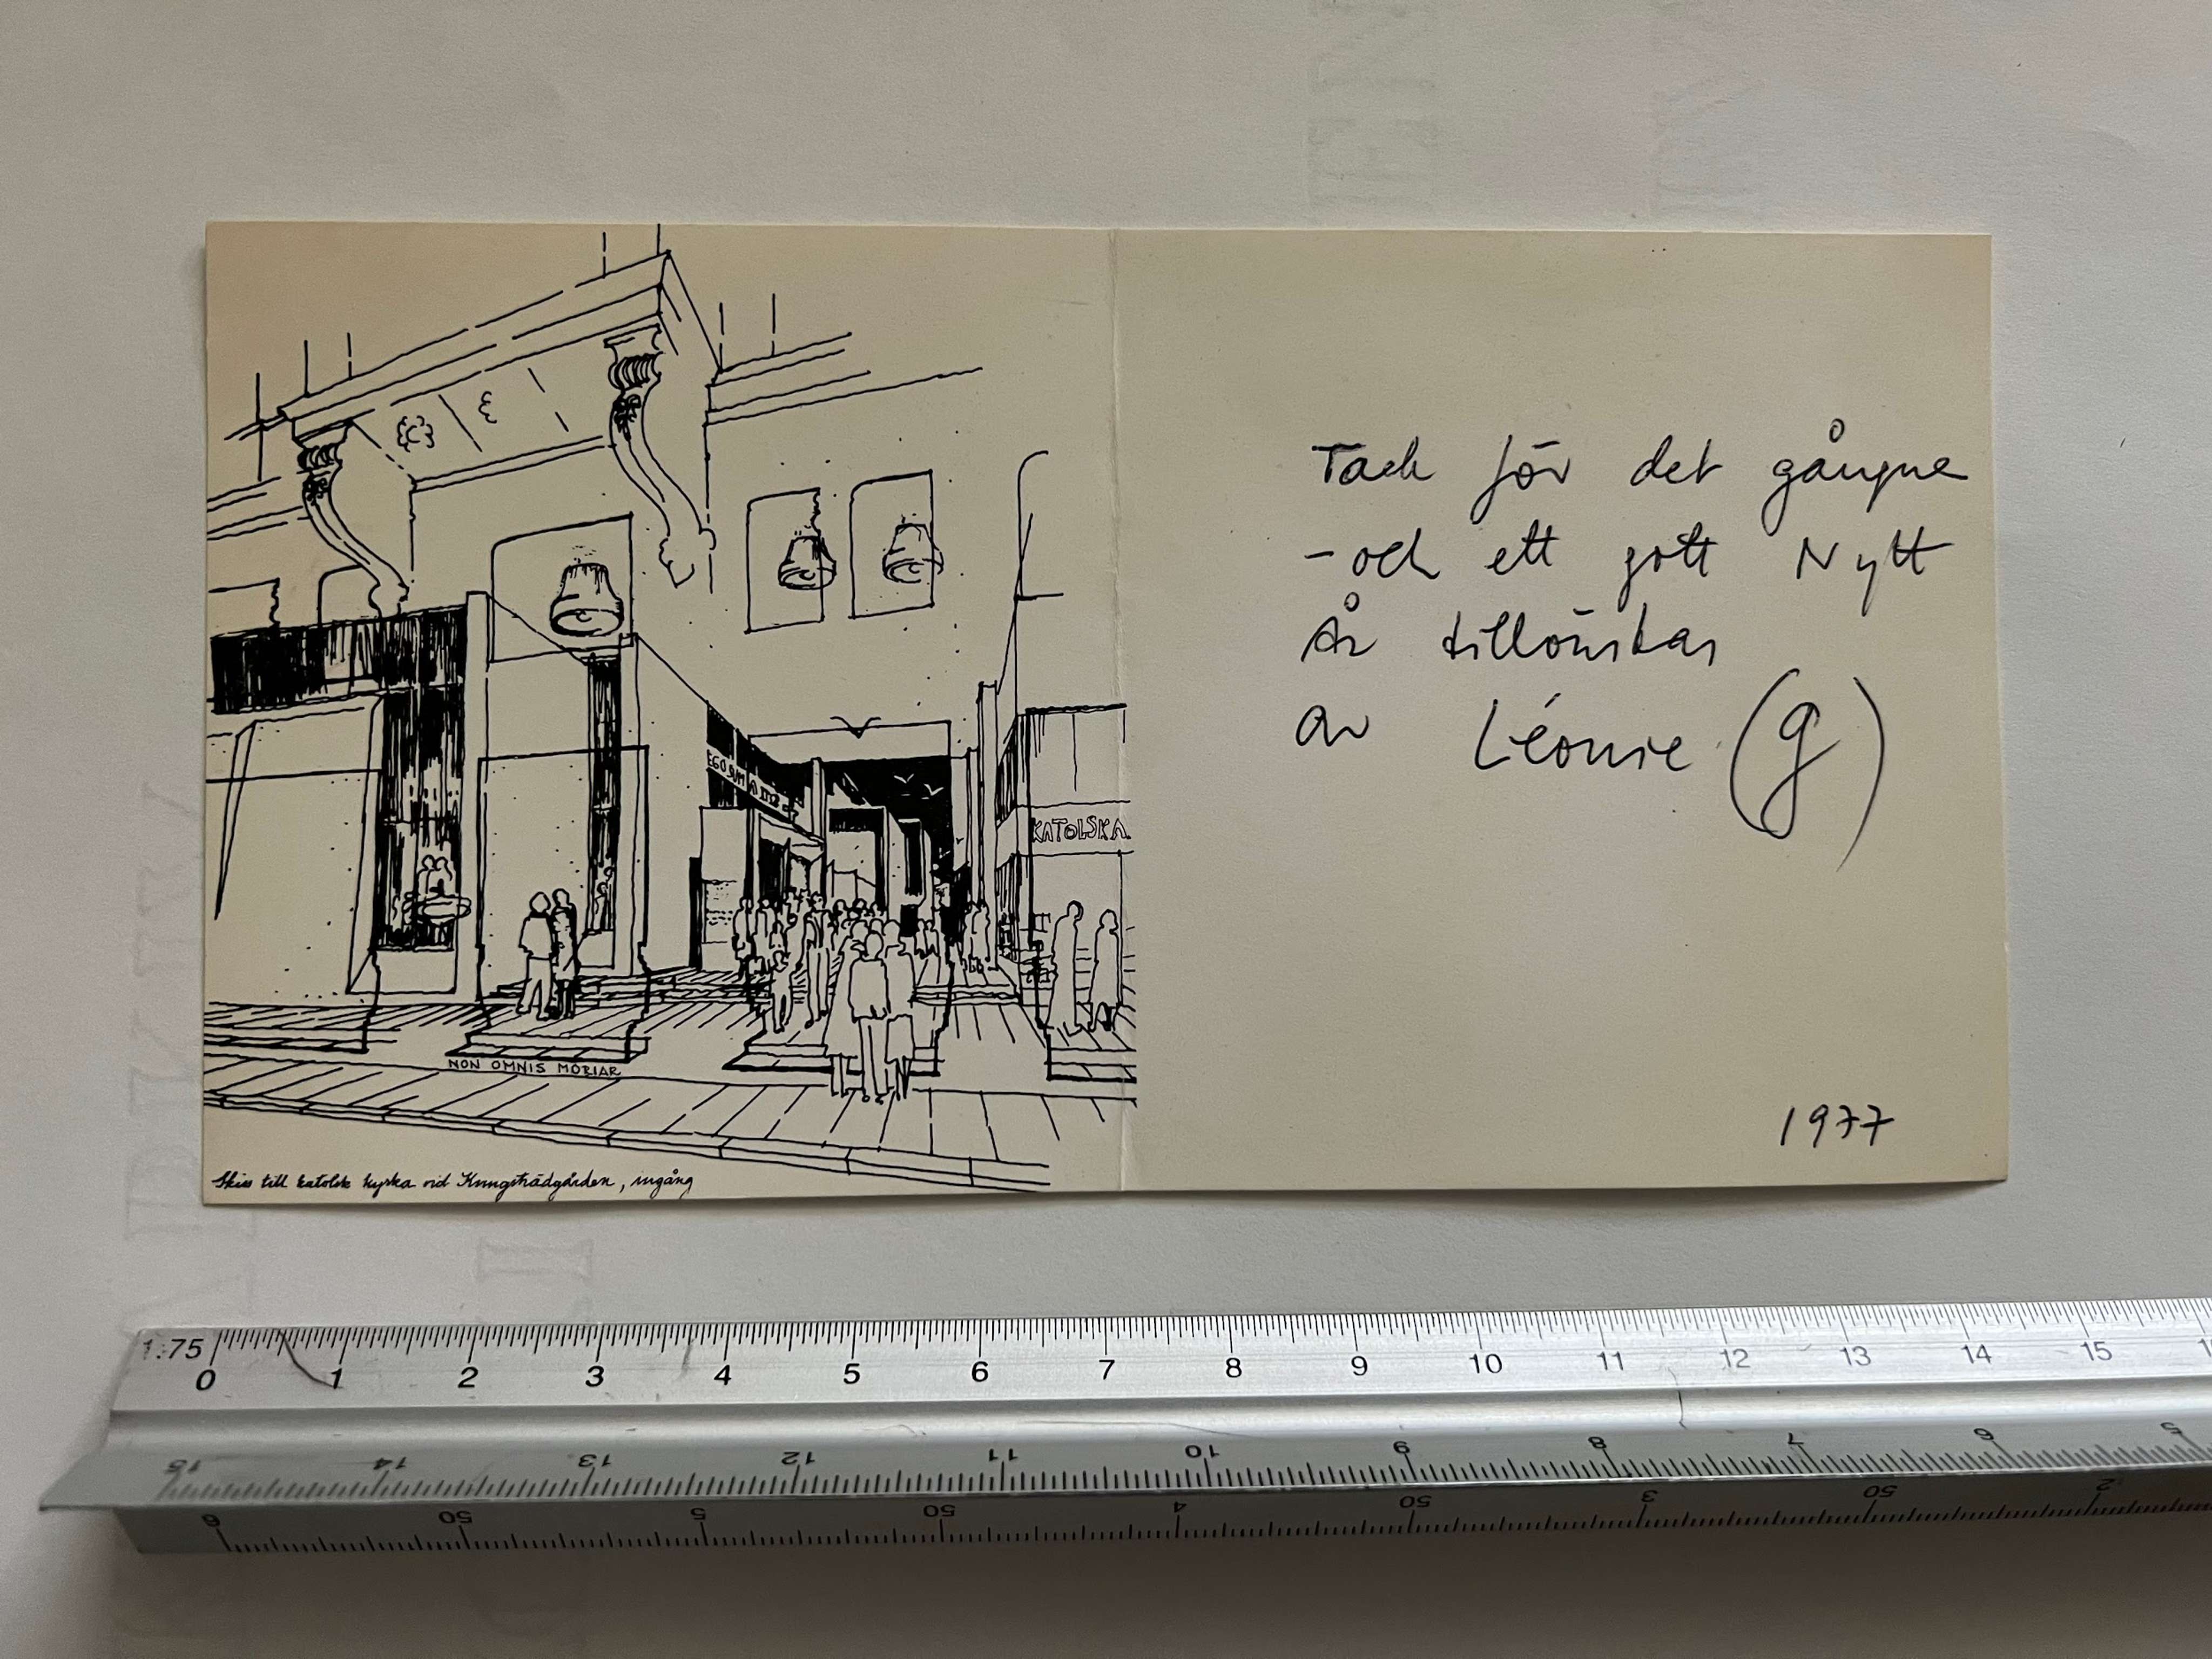 EGO SUM
KATOLSKA
NON OMNIS MORIAR
Skiss till katolsk kyrka vid Kungsträdgården, ingång
Tack för det gångna
- och ett gott Nytt
År tillönskas
av Léonie (g)
1977
1:75
0 1 2 3 4 5 6 7 8 9 10 11 12 13 14 15
15 14 13 12 11 10 9 8 7 6 5
6 50 5 50 4 50 3 50 2